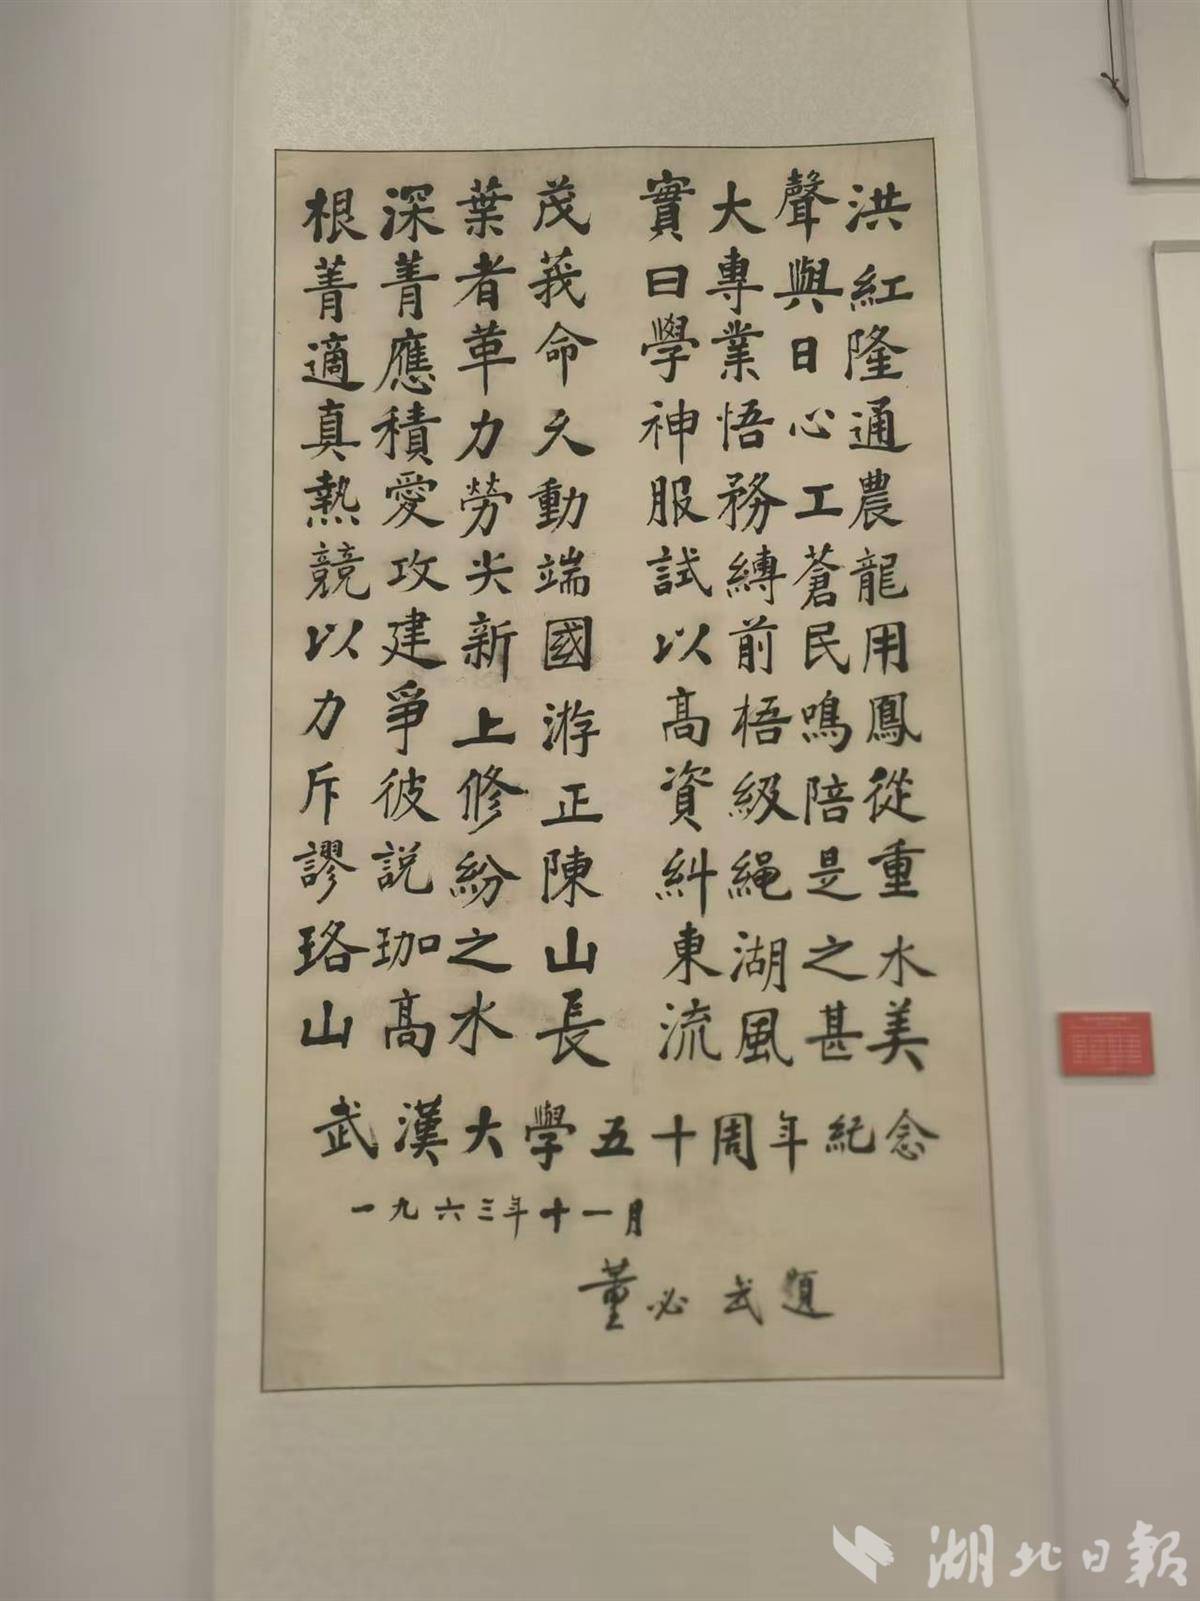 根深葉茂 實大聲洪
菁菁者莪 曰專與紅
適應革命 學業日隆
真積力久 神悟心通
熱愛勞動 服務工農
競攻尖端 試縛蒼龍
以建新國 以前民用
力爭上游 高梧鳴鳳
斥彼修正 資級陪從
謬説紛陳 糾繩是重
珞珈之山 東湖之水
山高水長 流風甚美
武漢大學五十周年紀念
一九六三年十一月
董必武題
湖北日報